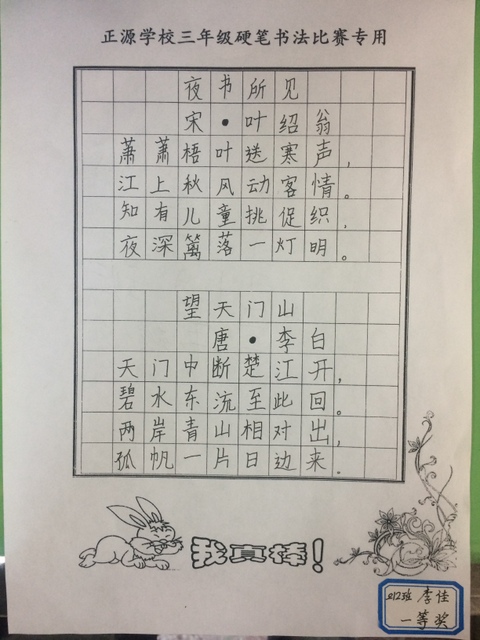 正源学校三年级硬笔书法比赛专用
夜书所见
宋·叶绍翁
萧萧梧叶送寒声，
江上秋风动客情。
知有儿童挑促织，
夜深篱落一灯明。
望天门山
唐·李白
天门中断楚江开，
碧水东流至此回。
两岸青山相对出，
孤帆一片日边来。
我真棒！
212班 李佳
一等奖